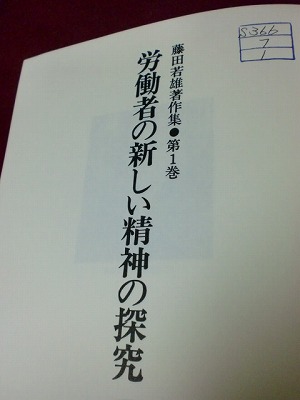 S366
7
1
藤田若雄著作集●第1巻
労働者の新しい精神の探究